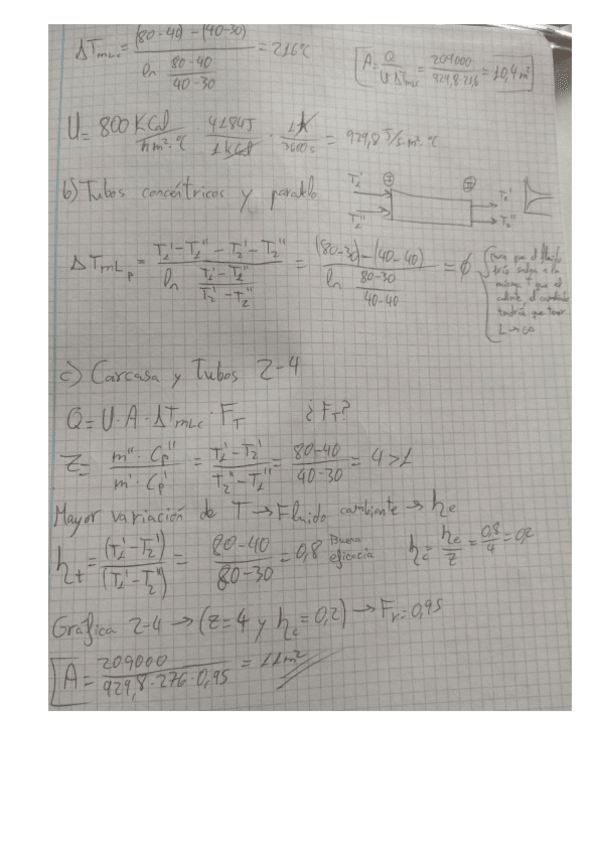 ΔTmLc = (80-40) - (40-30) / ln (80-40 / 40-30) = 21,6°C
A = Q / U·ΔTmLc = 209000 / 929,8·21,6 = 10,4 m²
U = 800 KCal / h m²·°C · 4184J / 1 kcal · 1h / 3600s = 929,8 J/s·m²·°C
b) Tubos concéntricos y paralelo
T1' T1'' T2' T2''
ΔTmLp = T1'-T1'' - T2'-T2'' / ln (T1'-T1'' / T2'-T2'') = (80-30) - (40-40) / ln (80-30 / 40-40) = ϕ
Para que el fluido
frío salga a la
misma T que el
caliente, el
tendría que tener
L → ∞
c) Carcasa y tubos 2-4
Q = U·A·ΔTmLc·FT ¿FT?
Z = m''·Cp'' / m'·Cp' = T1'-T2' / T2''-T1'' = 80-40 / 40-30 = 4 > 1
Mayor variación de T → Fluido cambiante → he
ht = (T1'-T2') / (T1'-T2'') = 80-40 / 80-30 = 0,8 Buena eficacia
hc = he / z = 0,8 / 4 = 0,2
Gráfica 2-4 → (z=4 y hc=0,2) → FT=0,95
A = 209000 / 929,8·276·0,95 = 11m²